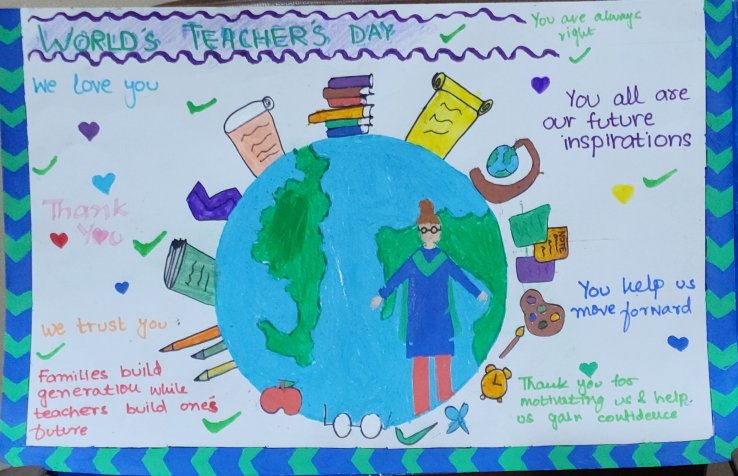 WORLD'S TEACHER'S DAY
You are always
right
We love you
You all are
our future
inspirations
Thank
You
You help us
move forward
We trust you
Families build
generation while
teachers build one's
future
Thank you for
motivating us & help
us gain confidence